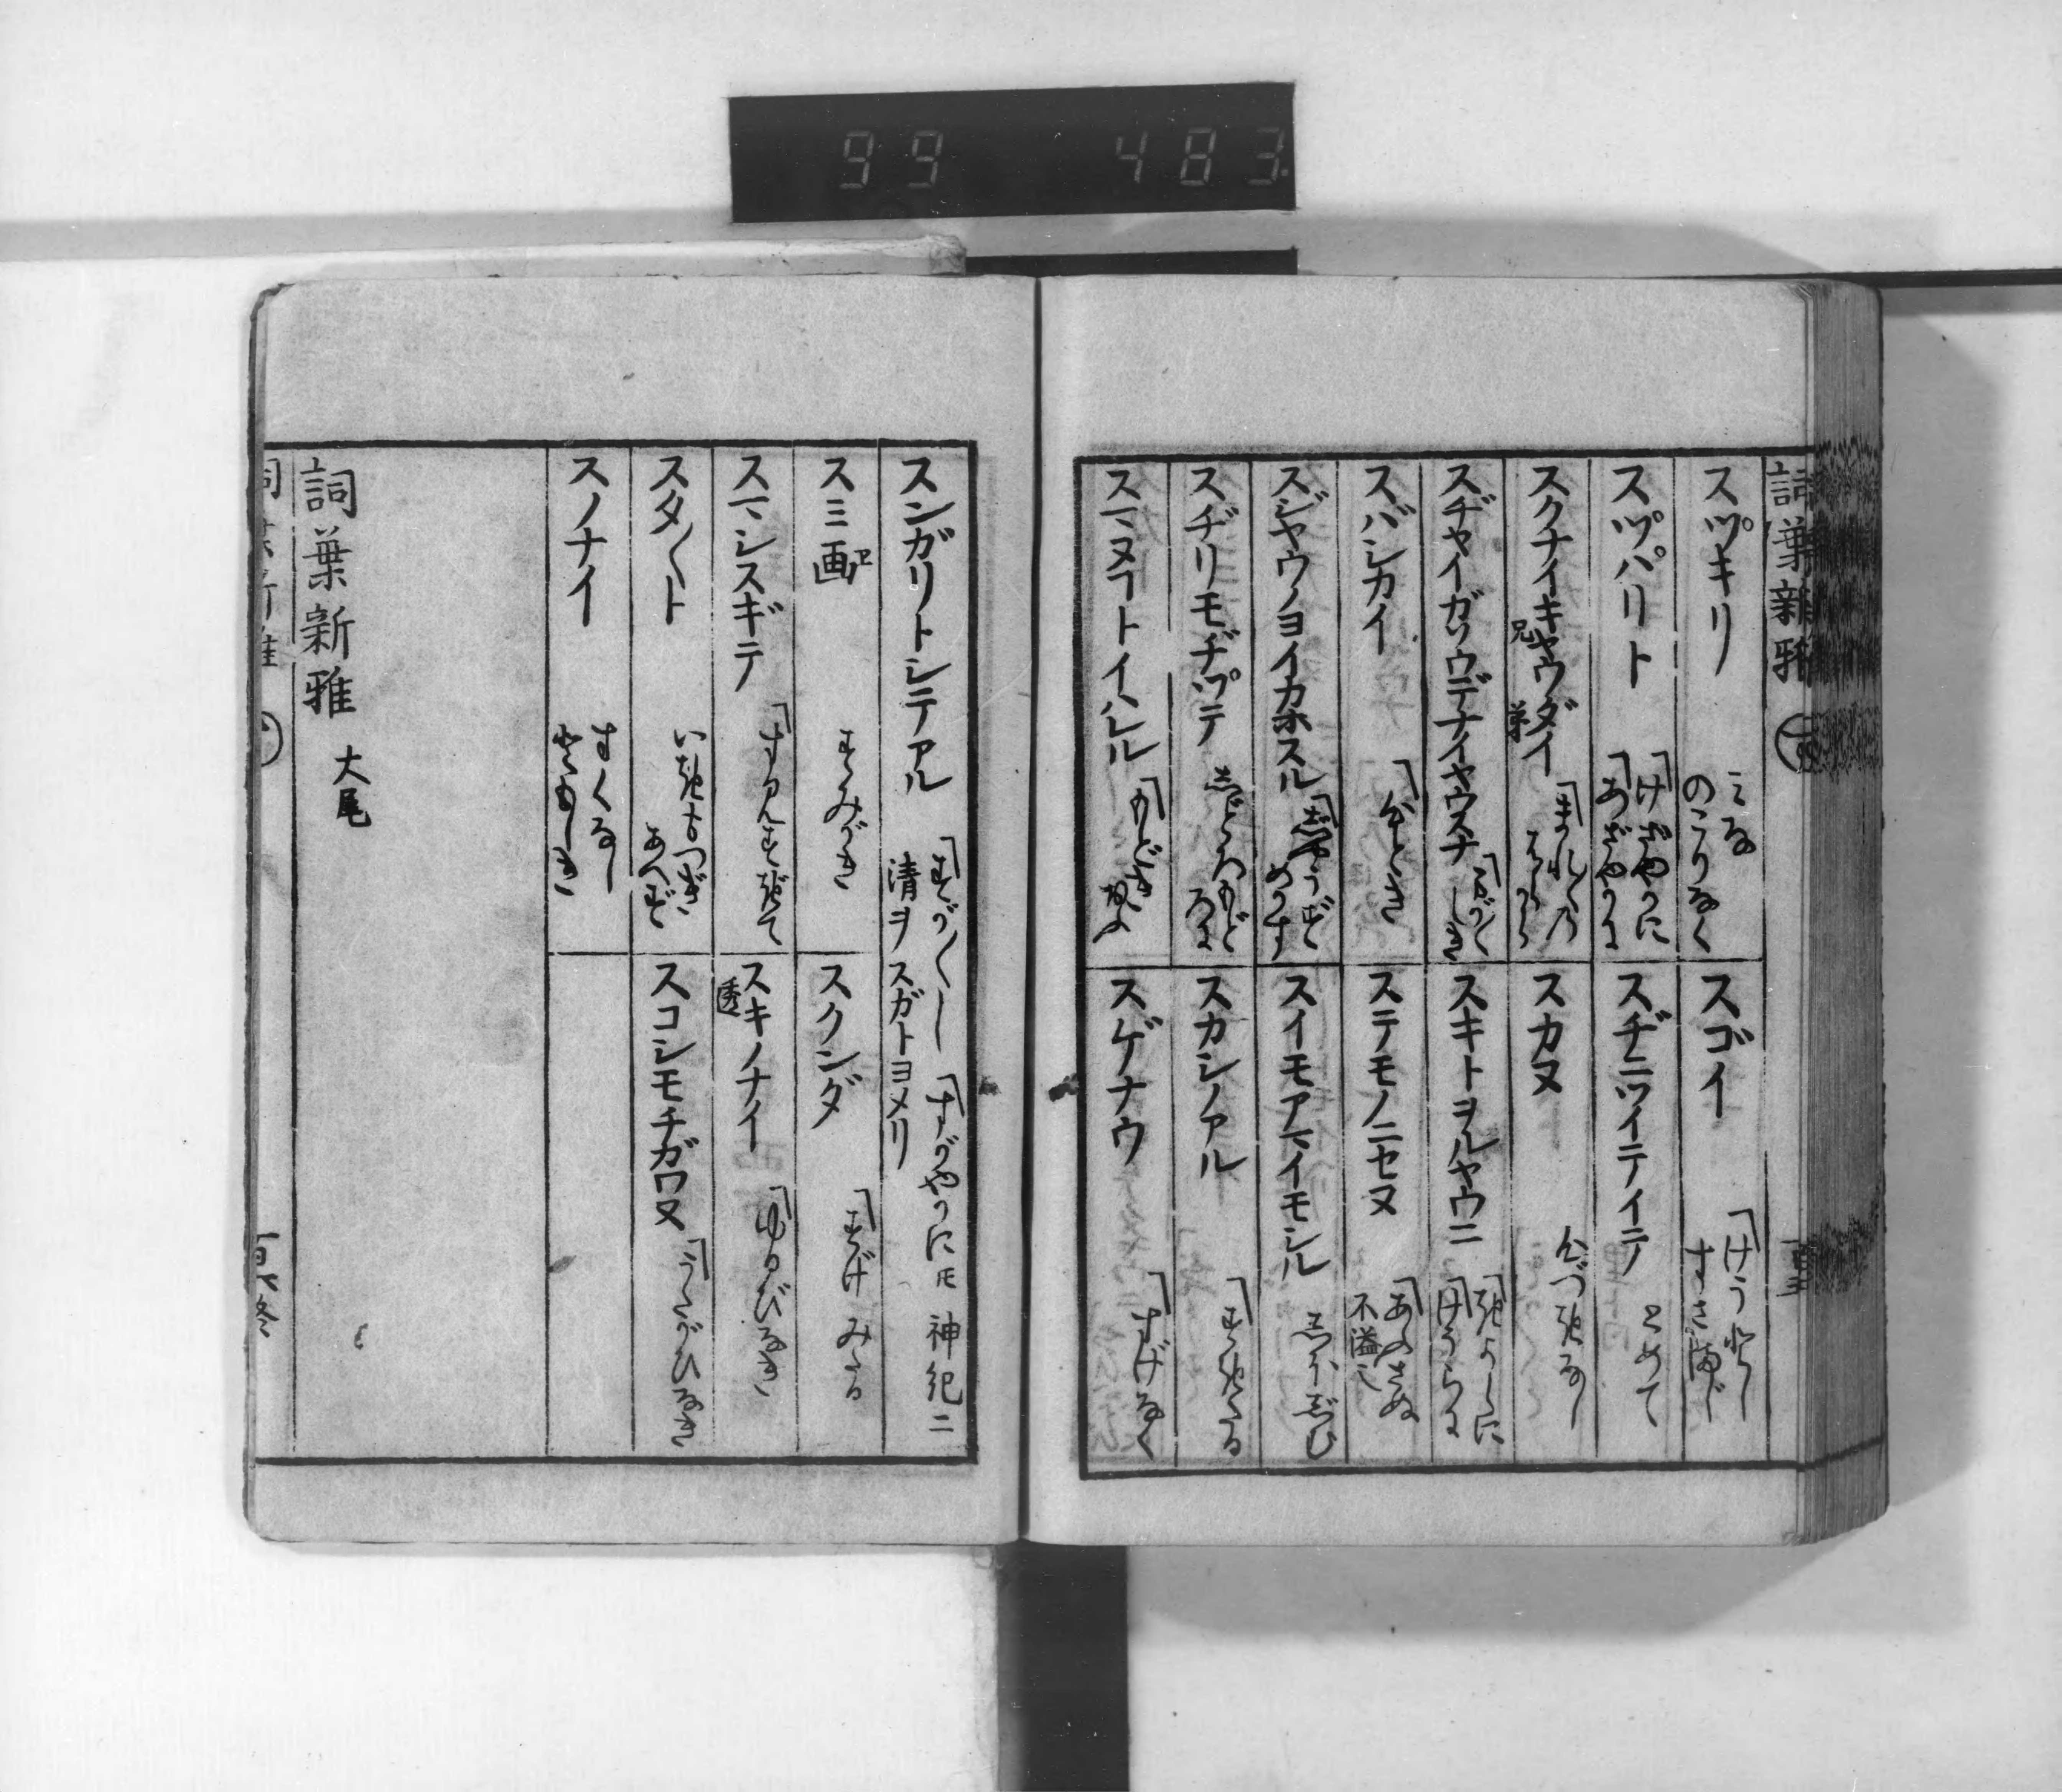 99 483
詞葉新雅
スツキリ
みな
のこりなく
スゴイ
「けうとし
すさまじ
スツパリト
「けざやかに
「あざやかに
スヂニツイテイテ
とめて
スクナイキヤウダイ
兄弟
「まれらの
はらから
スカヌ
心づきなし
スヂヤイガウデナイヤウスナ
しき
スキトヲルヤウニ
「けうらに
スバシカイ
「めとき
ステモノニセヌ
「あぶさぬ
不溢也
スジヤウノヨイカホスル
「じやうず
めかす
スイモアマイモシル
しほじむ
スヂリモヂツテ
しどろもど
ろに
スカシノアル
「すきたる
スマヌフトイハレル
「もどき
スゲナウ
「すげなく
スンガリトシテアル
「すが〱し
「すがやかにトモ 神紀ニ
清ヲスガトヨメリ
スミ画ヱ
すみがき
スクンダ
「すげみたる
スマシスギテ
スキノナイ
透
「ゆるびなき
スタ〱ト
いきもつぎ
あへず
スコシモチガワヌ
「うたがひなき
スノナイ
すくなし
ともしき
詞葉新雅 大尾